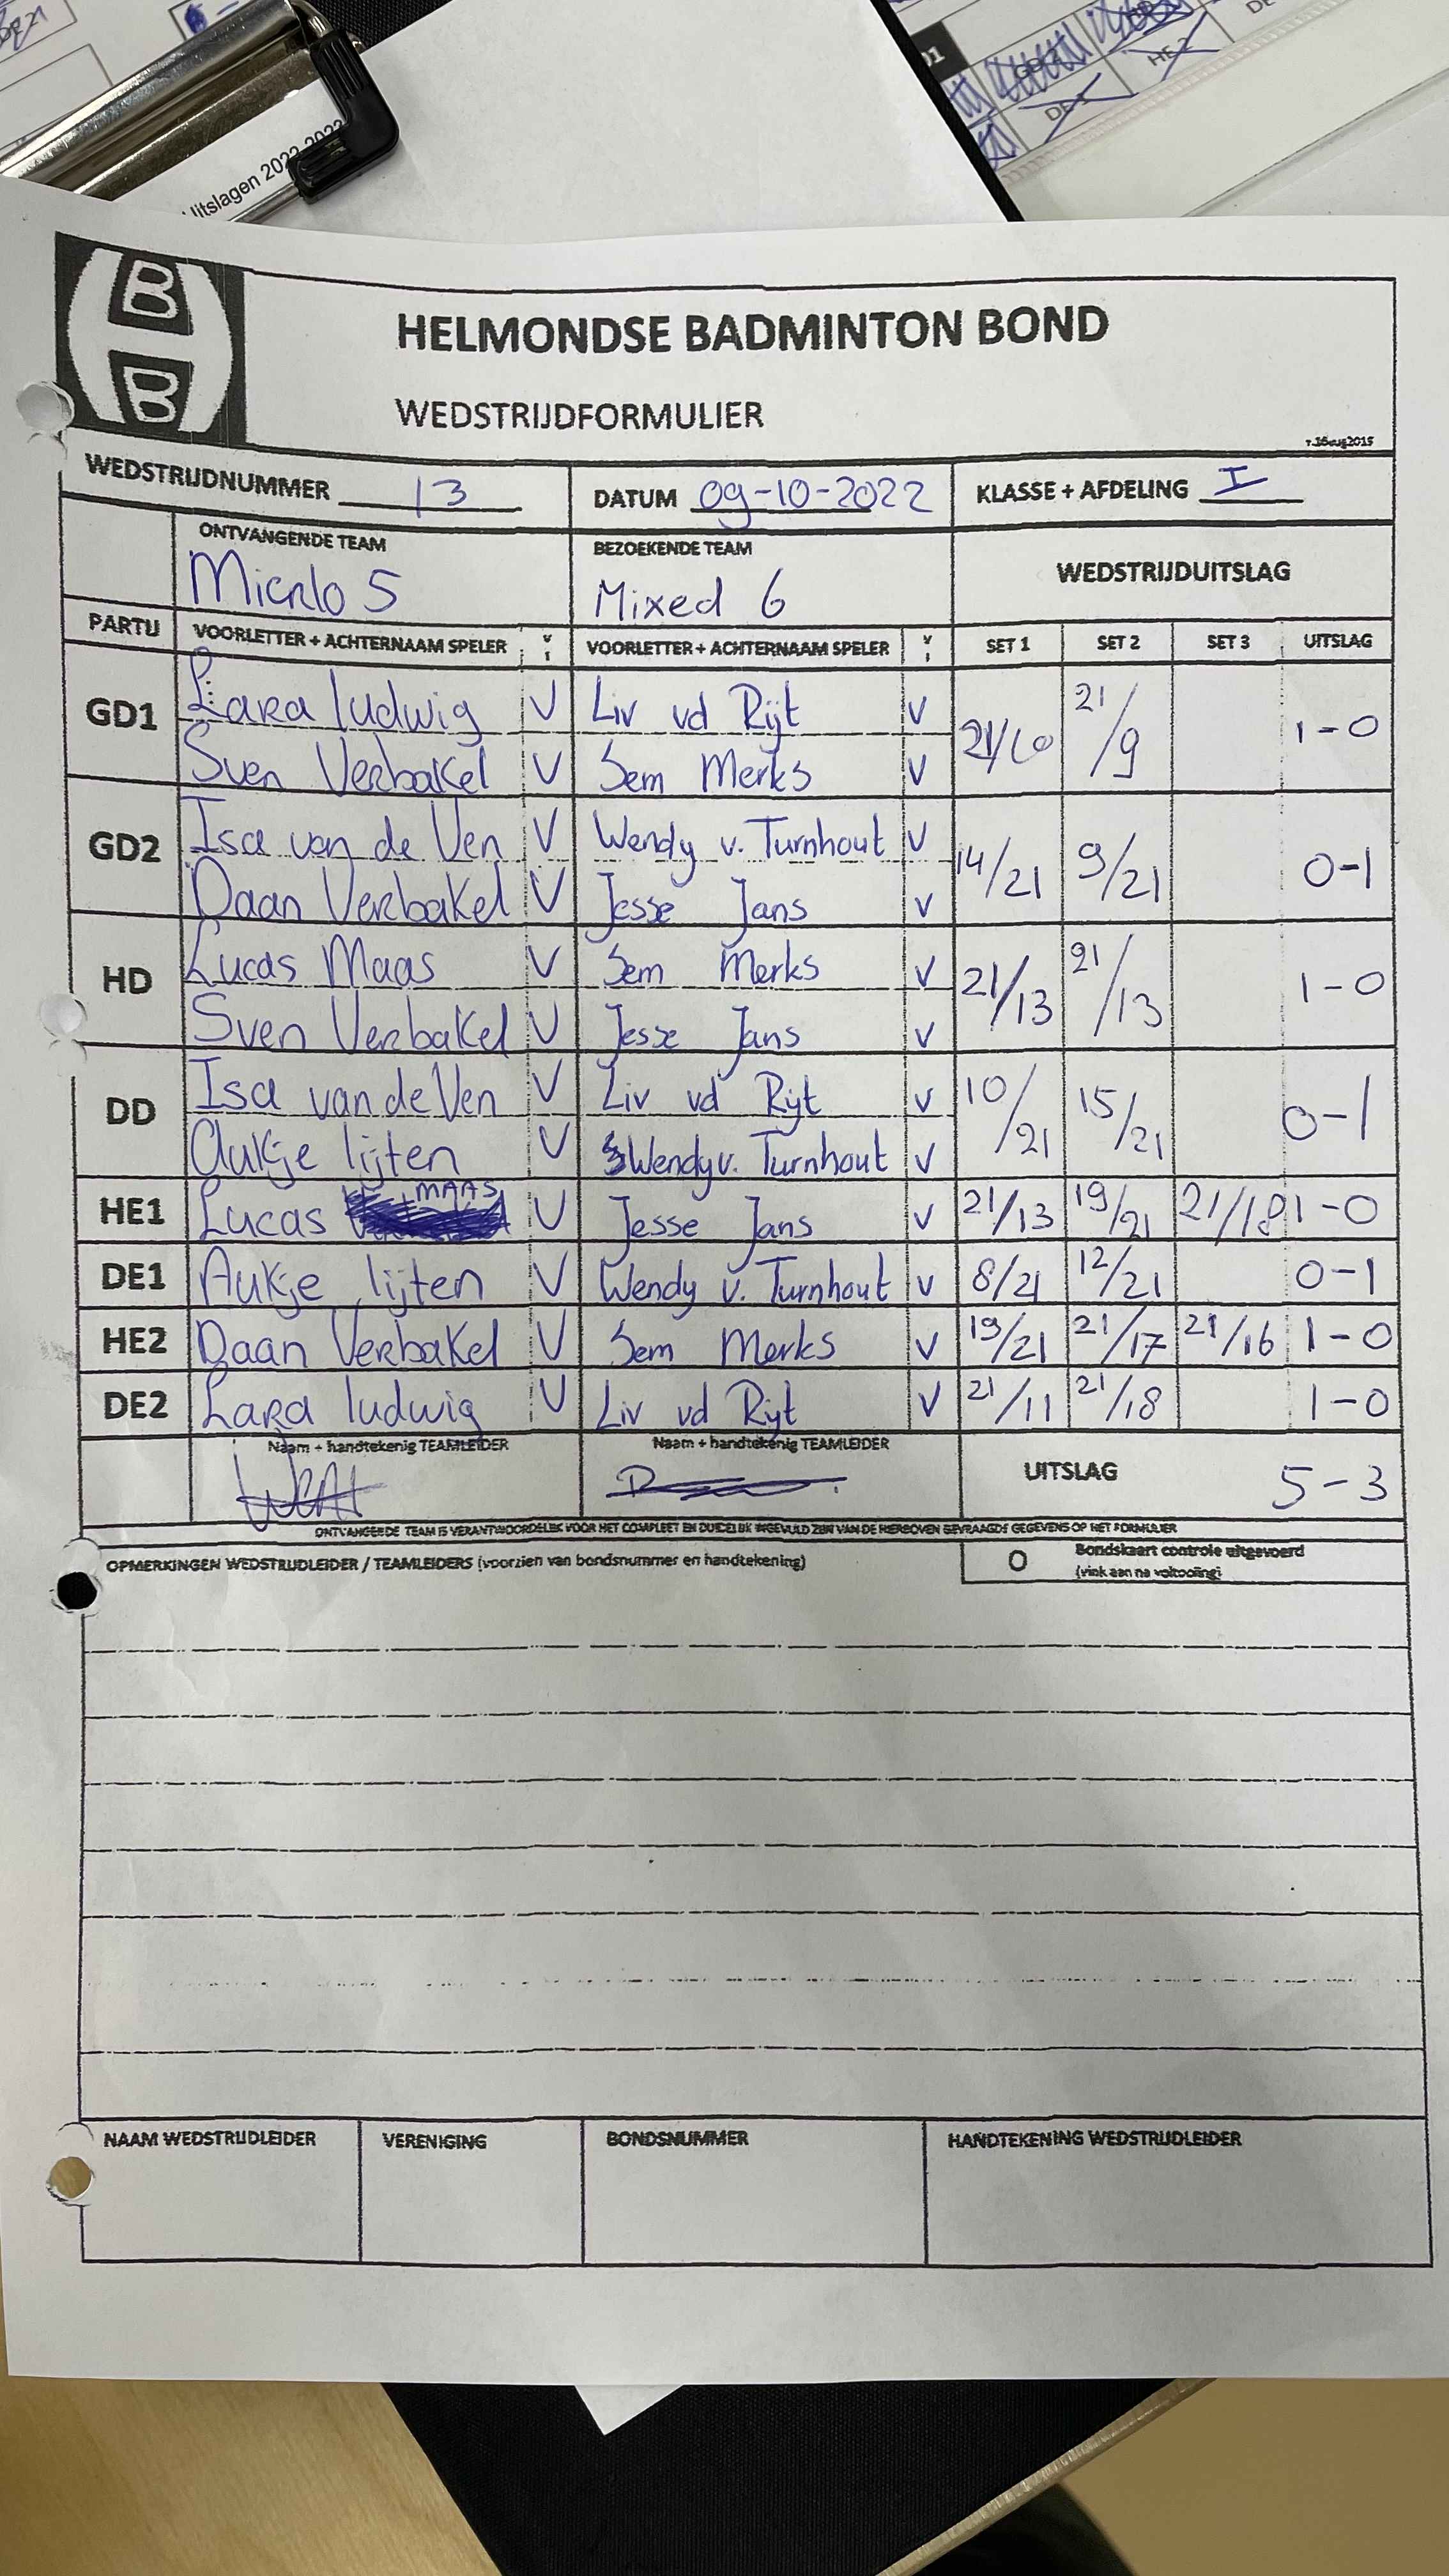 Uitslagen 2022-2023
HELMONDSE BADMINTON BOND
WEDSTRIJDFORMULIER
WEDSTRIJDNUMMER 13 DATUM 09-10-2022 KLASSE + AFDELING I
ONTVANGENDE TEAM BEZOEKENDE TEAM WEDSTRIJDUITSLAG
Mierlo 5 Mixed 6
PARTIJ VOORLETTER + ACHTERNAAM SPELER VOORLETTER + ACHTERNAAM SPELER SET 1 SET 2 SET 3 UITSLAG
GD1 Lara ludwig V Liv vd Rijt V 21/10 21/9 1-0
Sven Verbakel V Sem Merks V
GD2 Isa van de Ven V Wendy v. Turnhout V 14/21 9/21 0-1
Daan Verbakel V Jesse Jans V
HD Lucas Maas V Sem Merks V 21/13 21/13 1-0
Sven Verbakel V Jesse Jans V
DD Isa van de Ven V Liv vd Rijt V 10/21 15/21 0-1
Aukje lijten V Wendy v. Turnhout V
HE1 Lucas MAAS V Jesse Jans V 21/13 19/21 21/18 1-0
DE1 Aukje lijten V Wendy v. Turnhout V 8/21 12/21 0-1
HE2 Daan Verbakel V Sem Merks V 19/21 21/17 21/16 1-0
DE2 Lara ludwig V Liv vd Rijt V 21/11 21/18 1-0
Naam + handtekenig TEAMLEIDER Naam + handtekenig TEAMLEIDER UITSLAG 5-3
ONTVANGENDE TEAM IS VERANTWOORDELIJK VOOR HET COMPLEET EN DUIDELIJK INGEVULD ZIJN VAN DE HIERBOVEN GEVRAAGDE GEGEVENS OP HET FORMULIER
OPMERKINGEN WEDSTRIJDLEIDER / TEAMLEIDERS (voorzien van bondsnummer en handtekening) O Bondskaart controle uitgevoerd
(vink aan na voltooiing)
NAAM WEDSTRIJDLEIDER VERENIGING BONDSNUMMER HANDTEKENING WEDSTRIJDLEIDER